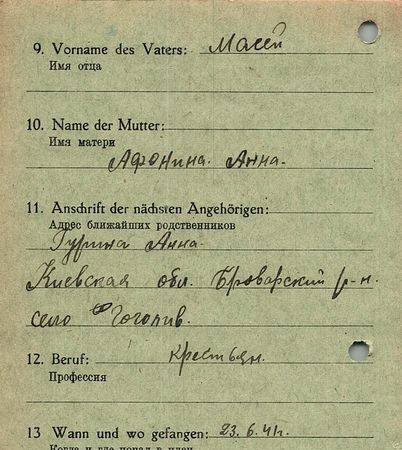 9. Vorname des Vaters: Масей
Имя отца
10. Name der Mutter:
Имя матери
Афонина Анна.
11. Anschrift der nächsten Angehörigen:
Адрес ближайших родственников
Гурина Анна.
Киевская обл. Броварский р-н.
село Гоголив.
12. Beruf: крестьян.
Профессия
13 Wann und wo gefangen: 23.6.41г.
Когда и где попал в плен